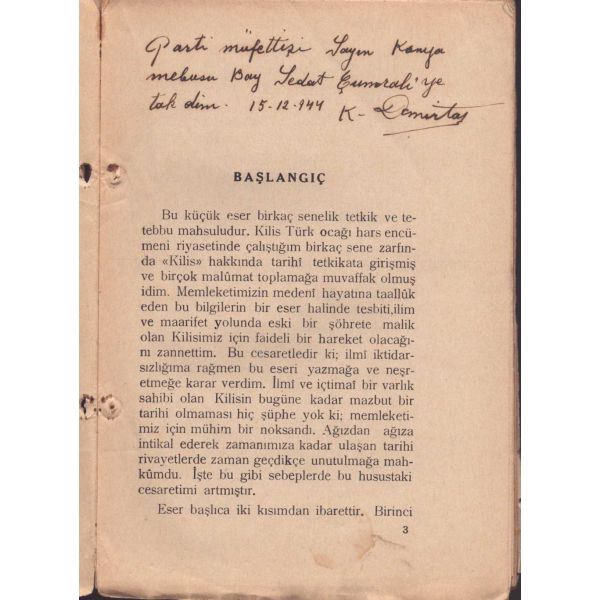 Parti müfettişi Sayın Konya
mebusu Bay Sedat Çumralı'ye
takdim. 15-12-944 K- Demirtaş
BAŞLANGIÇ
Bu küçük eser birkaç senelik tetkik ve te-
tebbu mahsuludur. Kilis Türk ocağı hars encü-
meni riyasetinde çalıştığım birkaç sene zarfın-
da «Kilis» hakkında tarihî tetkikata girişmiş
ve birçok malûmat toplamağa muvaffak olmuş
idim. Memleketimizin medenî hayatına taallûk
eden bu bilgilerin bir eser halinde tesbiti,ilim
ve maarifet yolunda eski bir şöhrete malik
olan Kilisimiz için faideli bir hareket olacağı-
nı zannettim. Bu cesaretledir ki; ilmî iktidar-
sızlığıma rağmen bu eseri yazmağa ve neşr-
etmeğe karar verdim. İlmî ve içtimaî bir varlık
sahibi olan Kilisin bugüne kadar mazbut bir
tarihi olmaması hiç şüphe yok ki; memleketi-
miz için mühim bir noksandı. Ağızdan ağıza
intikal ederek zamanımıza kadar ulaşan tarihi
rivayetlerde zaman geçdikçe unutulmağa mah-
kûmdu. İşte bu gibi sebeplerde bu husustaki
cesaretimi artmıştır.
Eser başlıca iki kısımdan ibarettir. Birinci
3